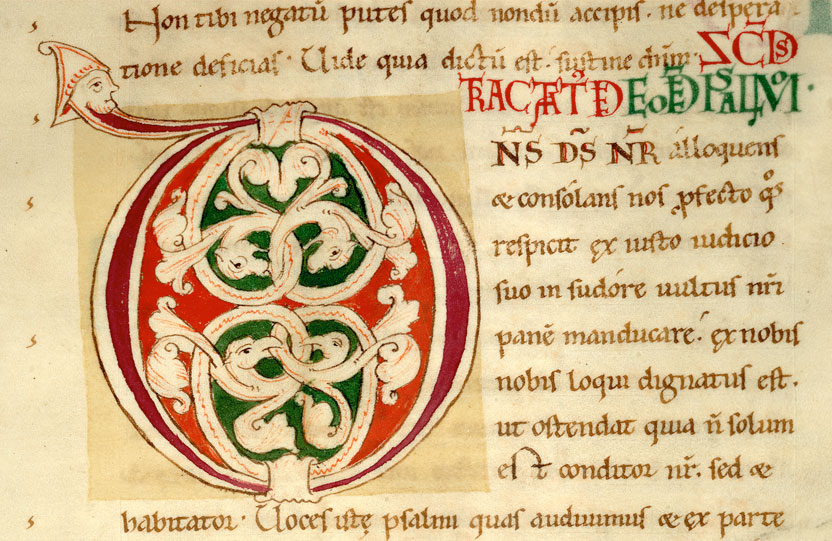 Non tibi negatū putes quod nondū accipis · ne despera
tione deficias · Vide quia dictū est · sustine dn̄m · SC̄DS
TRACTAT᷒ DE EODĒ PSALMO ·
DN̄S DS̄ NR̄ alloquens
& consolans nos ꝓfecto qͦs
respicit ęx iusto iudicio
suo in sudore uultus nr̄i
panē manducare · ęx nobis
nobis loqui dignatus est ·
ut ostendat quia n̄ solum
est conditor nr̄ · sed &
habitator · Voces istę psalmi quas audiuimus & ęx parte